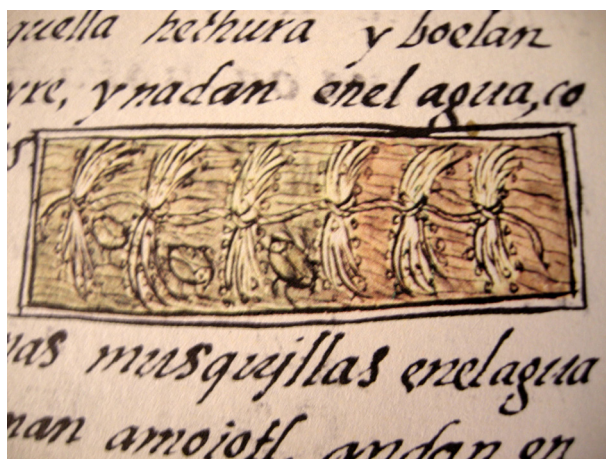 quella hechura y boelan
yre, y nadan enel agua, co
vas musqujllas enelagua
nan amojotl, andan en